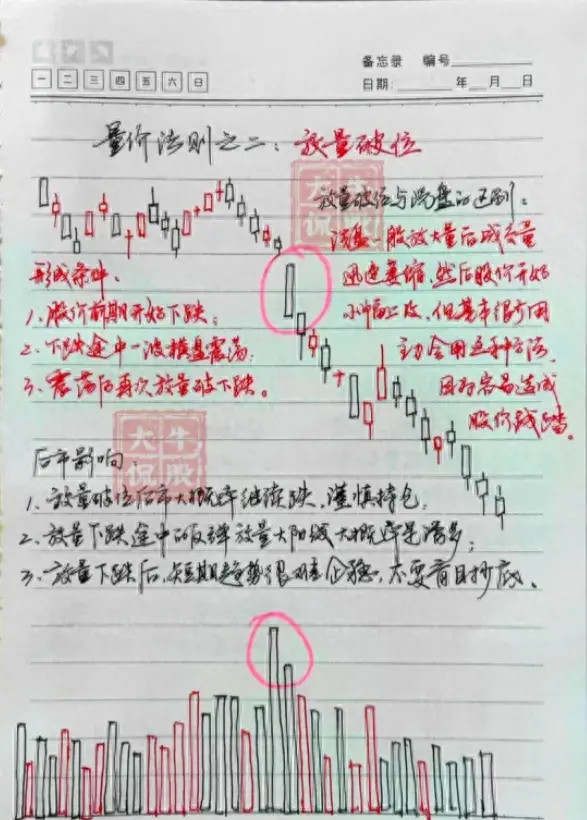 备忘录 编号
一 二 三 四 五 六 日
日期: 年 月 日
量价法则之二：放量破位
大牛
侃股
放量破位与洗盘的区别：
洗盘一般放大量后成交量
迅速萎缩，然后股价开始
小幅上攻，但基本很少用
主力会用这种方法，
因为容易造成
股价践踏。
形成条件。
1、股价前期开始下跌；
2、下跌途中一波横盘震荡；
3、震荡后再次放量破下跌。
大牛
侃股
后市影响：
1、放量破位后市大概率继续跌，谨慎持仓；
2、放量下跌途中的反弹放量大阳线大概率是诱多；
3、放量下跌后，短期趋势很难企稳，不要盲目抄底。